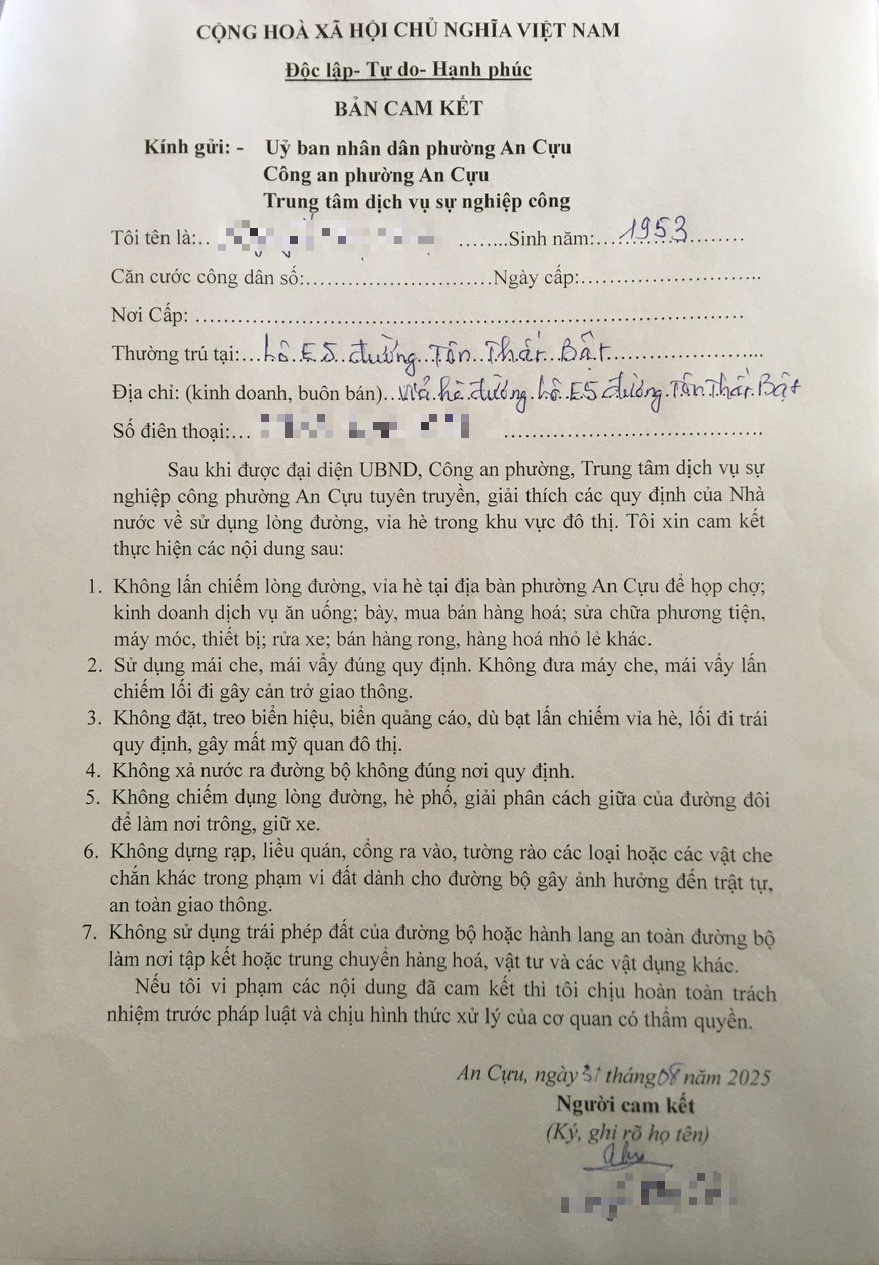 CỘNG HOÀ XÃ HỘI CHỦ NGHĨA VIỆT NAM
Độc lập- Tự do- Hạnh phúc
BẢN CAM KẾT
Kính gửi: - Uỷ ban nhân dân phường An Cựu
Công an phường An Cựu
Trung tâm dịch vụ sự nghiệp công
Tôi tên là:.. ........Sinh năm:....1953........
Căn cước công dân số:..........................Ngày cấp:..........................
Nơi Cấp: ..........................................................................
Thường trú tại:...Lô.E5..đường...Tôn..Thất..Bật..........................
Địa chỉ: (kinh doanh, buôn bán)..vỉa.hè.đường.Lô.E5 đường.Tôn.Thất.Bật
Số điện thoại:... .....................................
Sau khi được đại diện UBND, Công an phường, Trung tâm dịch vụ sự
nghiệp công phường An Cựu tuyên truyền, giải thích các quy định của Nhà
nước về sử dụng lòng đường, vỉa hè trong khu vực đô thị. Tôi xin cam kết
thực hiện các nội dung sau:
1. Không lấn chiếm lòng đường, vỉa hè tại địa bàn phường An Cựu để họp chợ;
kinh doanh dịch vụ ăn uống; bày, mua bán hàng hoá; sửa chữa phương tiện,
máy móc, thiết bị; rửa xe; bán hàng rong, hàng hoá nhỏ lẻ khác.
2. Sử dụng mái che, mái vẩy đúng quy định. Không đưa máy che, mái vẩy lấn
chiếm lối đi gây cản trở giao thông.
3. Không đặt, treo biển hiệu, biển quảng cáo, dù bạt lấn chiếm vỉa hè, lối đi trái
quy định, gây mất mỹ quan đô thị.
4. Không xả nước ra đường bộ không đúng nơi quy định.
5. Không chiếm dụng lòng đường, hè phố, giải phân cách giữa của đường đôi
để làm nơi trông, giữ xe.
6. Không dựng rạp, liều quán, cổng ra vào, tường rào các loại hoặc các vật che
chắn khác trong phạm vi đất dành cho đường bộ gây ảnh hưởng đến trật tự,
an toàn giao thông.
7. Không sử dụng trái phép đất của đường bộ hoặc hành lang an toàn đường bộ
làm nơi tập kết hoặc trung chuyển hàng hoá, vật tư và các vật dụng khác.
Nếu tôi vi phạm các nội dung đã cam kết thì tôi chịu hoàn toàn trách
nhiệm trước pháp luật và chịu hình thức xử lý của cơ quan có thẩm quyền.
An Cựu, ngày 31 tháng 08 năm 2025
Người cam kết
(Ký, ghi rõ họ tên)